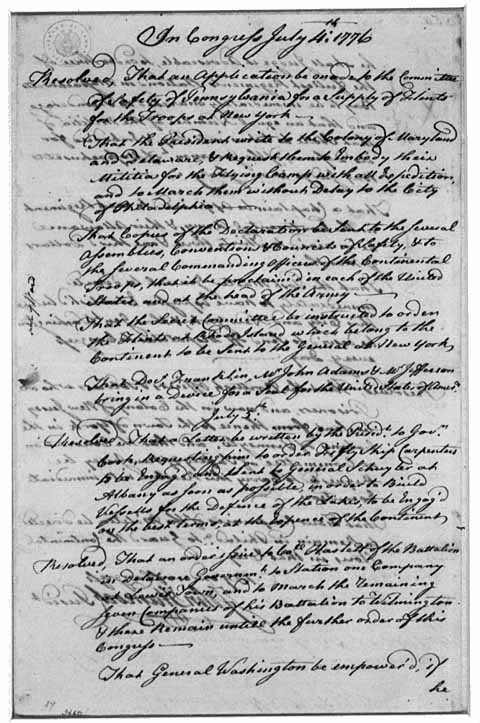 In Congress July 4th: 1776
Resolved, That an Application be made to the Committee
of Safety of Pennsylvania for a Supply of Flints
for the Troops at New York
That the President write to the Colony of Maryland
and Delaware, & Request them to Embody their
Militia for the Flying Camp, with all Expedition,
and to March them without Delay to the City
of Philadelphia
That Copies of the Declaration be sent to the several
Assemblies, Conventions & Councils of Safety, & to
the several Commanding Officers of the Continental
Troops, that it be proclaimed in each of the United
States, and at the head of the Army
That the Secret Committee be instructed to order
the Flints at Rhode Island which belong to the
Continent to be Sent to the General at New York
That Docr. Franklin, Mr. John Adams & Mr. Jefferson
bring in a Device for a Seal for the United States of
July
Resolved, That a Letter be written by the Presidt. to Govr.
Cook, Requesting him to order Fifty Ship Carpenters
to be Engaged and Sent to General Schuyler at
Albany as soon as possible, in order to Build
Vessells for the defence of the Lakes, to be Engag'd
on the best terms, at the Expence of the Continent
Resolved, That an order issue to Colo. Haslett of the Battalion
in Delaware Governmt. to Station one Company
at Lewis Town, and to March the remaining
seven Companies of his Battalion to Wilmington
& there Remain untill the further order of this
Congress
That General Washington be empower'd, if
he